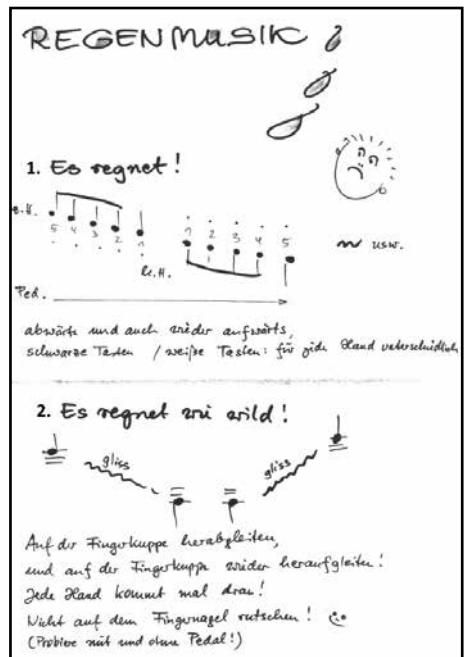 REGENMUSIK
1. Es regnet!
r.H.
5 4 3 2 1 1 2 3 4 5
usw.
l.H.
Ped.
abwärts und auch wieder aufwärts,
schwarze Tasten / weiße Tasten: für jede Hand unterschiedlich
2. Es regnet wie wild!
gliss gliss
Auf der Fingerkuppe herabgleiten,
und auf der Fingerkuppe wieder heraufgleiten!
Jede Hand kommt mal dran!
Nicht auf dem Fingernagel rutschen!
(Probiere mit und ohne Pedal!)